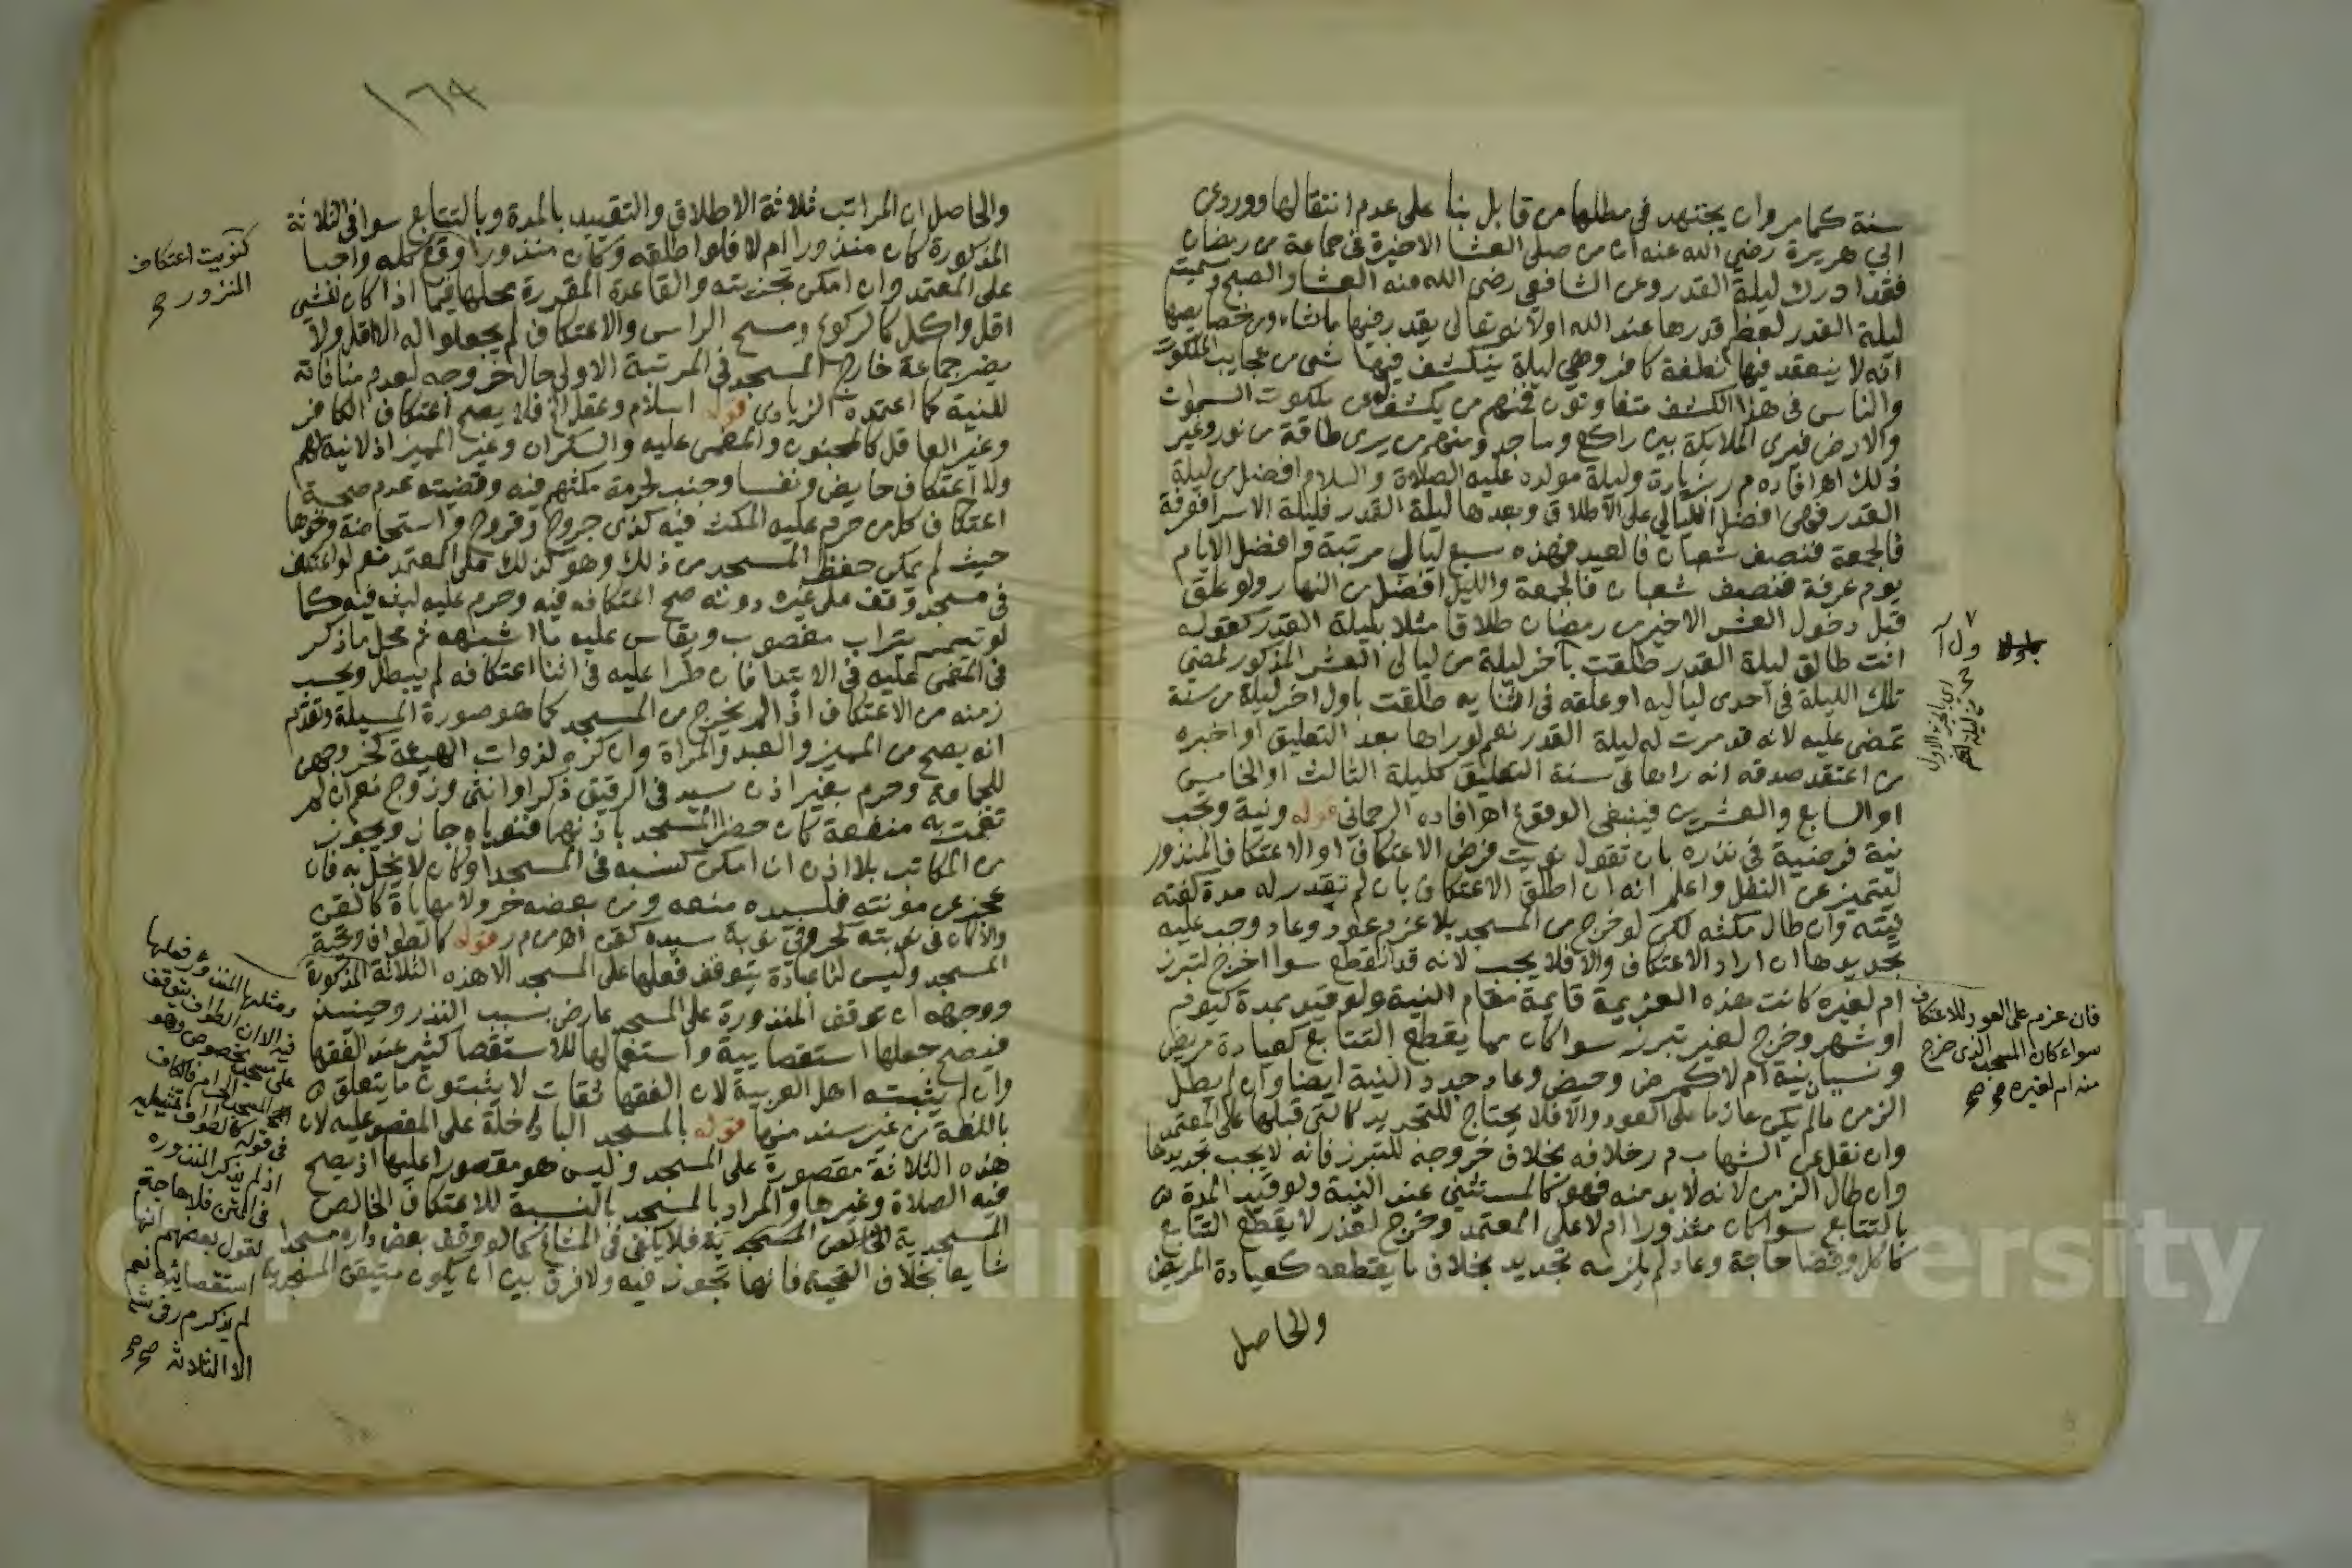 سنة كما مر وان يجتهد في مطلها من قابل بنا على عدم انتقالها وروى
ابي هريرة رضي الله عنه ان من صلى العشا الاخيرة في جماعة من رمضان
فقد ادرك ليلة القدر وعن الشافعي رضى الله منه العشا والصبح وسميت
ليلة القدر لعظم قدرها عند الله اولانه تعالى يقدر فيها ما شاء ومن خصايصها
انه لا ينعقد فيها نطفة كافر وهي ليلة ينكشف فيها شى من عجايب الملكوت
والناس فى هذا الكشف متفاوتون فمنهم من يكشف له عن ملكوت السموات
والارض فيرى الملايكة بين راكع وساجد ومنهم من يرى طاقة من نور وغير
ذلك اهـ افاده م ر بزيارة وليلة مولده عليه الصلاة والسلام افضل من ليلة
القدر فهي افضل الليالي على الاطلاق وبعدها ليلة القدر فليلة الاسرا فعرفة
فالجمعة فنصف شعبان فالعيد فهذه سبع ليال مرتبة وافضل الايام
يوم عرفة فنصف شعبان فالجمعة والليل افضل من النهار ولو علق
قبل دخول العشر الاخير من رمضان طلاقا مثلا بليلة القدر كقوله
انت طالق ليلة القدر طلقت بآخر ليلة من ليالى العشر المذكور لمضي
تلك الليلة في احدى لياليه او علقه في اثنايه طلقت باول اخر ليلة من سنة
تمضى عليه لانه قد مرت له ليلة القدر نعم لو راها بعد التعليق او اخبره
من اعتقد صدقه انه راها في سنة التعليق كليلة الثالث او الخامس
او السابع والعشرين فينبغى الوقوع اهـ افاده الرحماني قوله ونية وتجب
نية فرضية في نذره بان تقول نويت فرض الاعتكاف او الاعتكاف المنذور
ليتميز عن النفل واعلم انه ان اطلق الاعتكاف بان لم يقدر له مدة كفته
نيته وان طال مكثه لكن لو خرج من المسجد بلا عزم عود وعاد وجب عليه
تجديدها ان اراد الاعتكاف والا فلا يجب لانه قد انقطع سوا اخرج لتبرز
ام لغيره كانت هذه العزيمة قايمة مقام النية ولو قيد بمدة كيوم
او شهر وخرج لغير تبرز سوا كان مما يقطع التتابع كعيادة مريض
ونسيان نية ام لا كمرض وحيض وعاد جدد النية ايضا وان لم يطل
الزمن مالم يكن عازما على العود والا فلا يحتاج للتجديد كالتى قبلها على المعتمد
وان نقل عن الشهاب م ر خلافه بخلاف خروجه للتبرز فانه لا يجب تجديدها
وان طال الزمن لانه لا بد منه فهو كالمستثنى عند النية ولو قيد المدة
بالتتابع سوا كان منذورا ام لا على المعتمد وخرج لعذر لا يقطع التتابع
كاكل وقضا حاجة وعاد لم يلزمه تجديد بخلاف ما يقطعه كعيادة المريض
والحاصل
فان عزم على العود للاعتكاف
سواء كان المسجد الذى خرج
منه ام لغيره صح
١٦٩
والحاصل ان المراتب ثلاثة الاطلاق والتقييد بالمدة وبالتتابع سوا في الثلاثة
المذكورة كان منذورا ام لا فلو اطلقه وكان منذورا وقع كله واجبا
على المعتمد وان امكن تجزيته والقاعدة المقررة محلها فيما اذا كان لشى
اقل واكمل كالركوع ومسح الراس والاعتكاف لم يجعلوا له الا اقل ولا
يضر جماعة خارج المسجد في المرتبة الاولى حال خروجه لعدم منافاته
للنية كما اعتمده الزيادى قوله اسلام وعقل الخ فلا يصح اعتكاف الكافر
وغير العاقل كالمجنون والمغمى عليه والسكران وغير المميز اذ لا نية لهم
ولا اعتكاف حايض ونفسا وجنب لحرمة مكثهم فيه وقضيته عدم صحة
اعتكاف كل من حرم عليه المكث فيه كذى جروح وقروح واستحاضة ونحوها
حيث لم يمكن حفظ المسجد من ذلك وهو كذلك على المعتمد نعم لو اعتكف
في مسجد وقف على غيره دونه صح اعتكافه فيه وحرم عليه لبثه فيه كما
لو تيمم بتراب مغصوب ويقاس عليه ما اشبهه ثم محل ما ذكر
فى المغمى عليه في الابتدا فان طرا عليه في اثنا اعتكافه لم يبطل ويحسب
زمنه من الاعتكاف اذا لم يخرج من المسجد كما هو صورة المسيلة وتقدم
انه يصح من المميز والعبد والمراة وان كره لذوات الهيئة كخروجهن
للجماعة وحرم بغير اذن سيد في الرقيق ذكرا او انثى وزوج نعم ان لم
تفت به منفعة كان حضر المسجد باذنهما فنوياه جاز ويجوز
من المكاتب بلا اذن ان امكن كسبه في المسجد او كان لا يخل به فان
عجز عن مونته فلسيده منعه ومن بعضه حر ولا مهاياة كالقن
والا كان في نوبته كحر وفي نوبة سيده كقن اهـ من م ر قوله كالطواف وتحية
المسجد وليس لنا عبادة يتوقف فعلها على المسجد الا هذه الثلاثة المذكورة
ووجهه ان توقف المنذورة على المسجد عارض بسبب النذر وحينئذ
فيصح جعلها استقصايية واستعمالها للاستقصا كثير عند الفقها
وان لم يثبته اهل العربية لان الفقها ثقات لا يثبتون ما يتعلق
باللغة من غير سند منها قوله بالمسجد البا داخلة على المقصور عليه لان
هذه الثلاثة مقصورة على المسجد وليس هو مقصورا عليها اذ يصح
فيه الصلاة وغيرها والمراد بالمسجد بالنسبة للاعتكاف الخالص
المسجدية فلا يكفى في المشاع كما لو وقف بعض داره مسجدا
شايعا بخلاف التحية فانها تجوز فيه ولا فرق بين ان يكون متيقن المسجدية
كنويت اعتكاف
المنزور صح
ومثلها المنذور فعلها
فيه الا ان الطواف يتوقف
على مسجد مخصوص وهو
المسجد الحرام فالكاف
في قوله كالطواف تمثيلية
اذ لم يذكر المنذوره
في المتن فلا حاجة
لقول بعضهم انها
استقصائية نعم
لم يذكر م ر في ش
الا الثلاثة صح